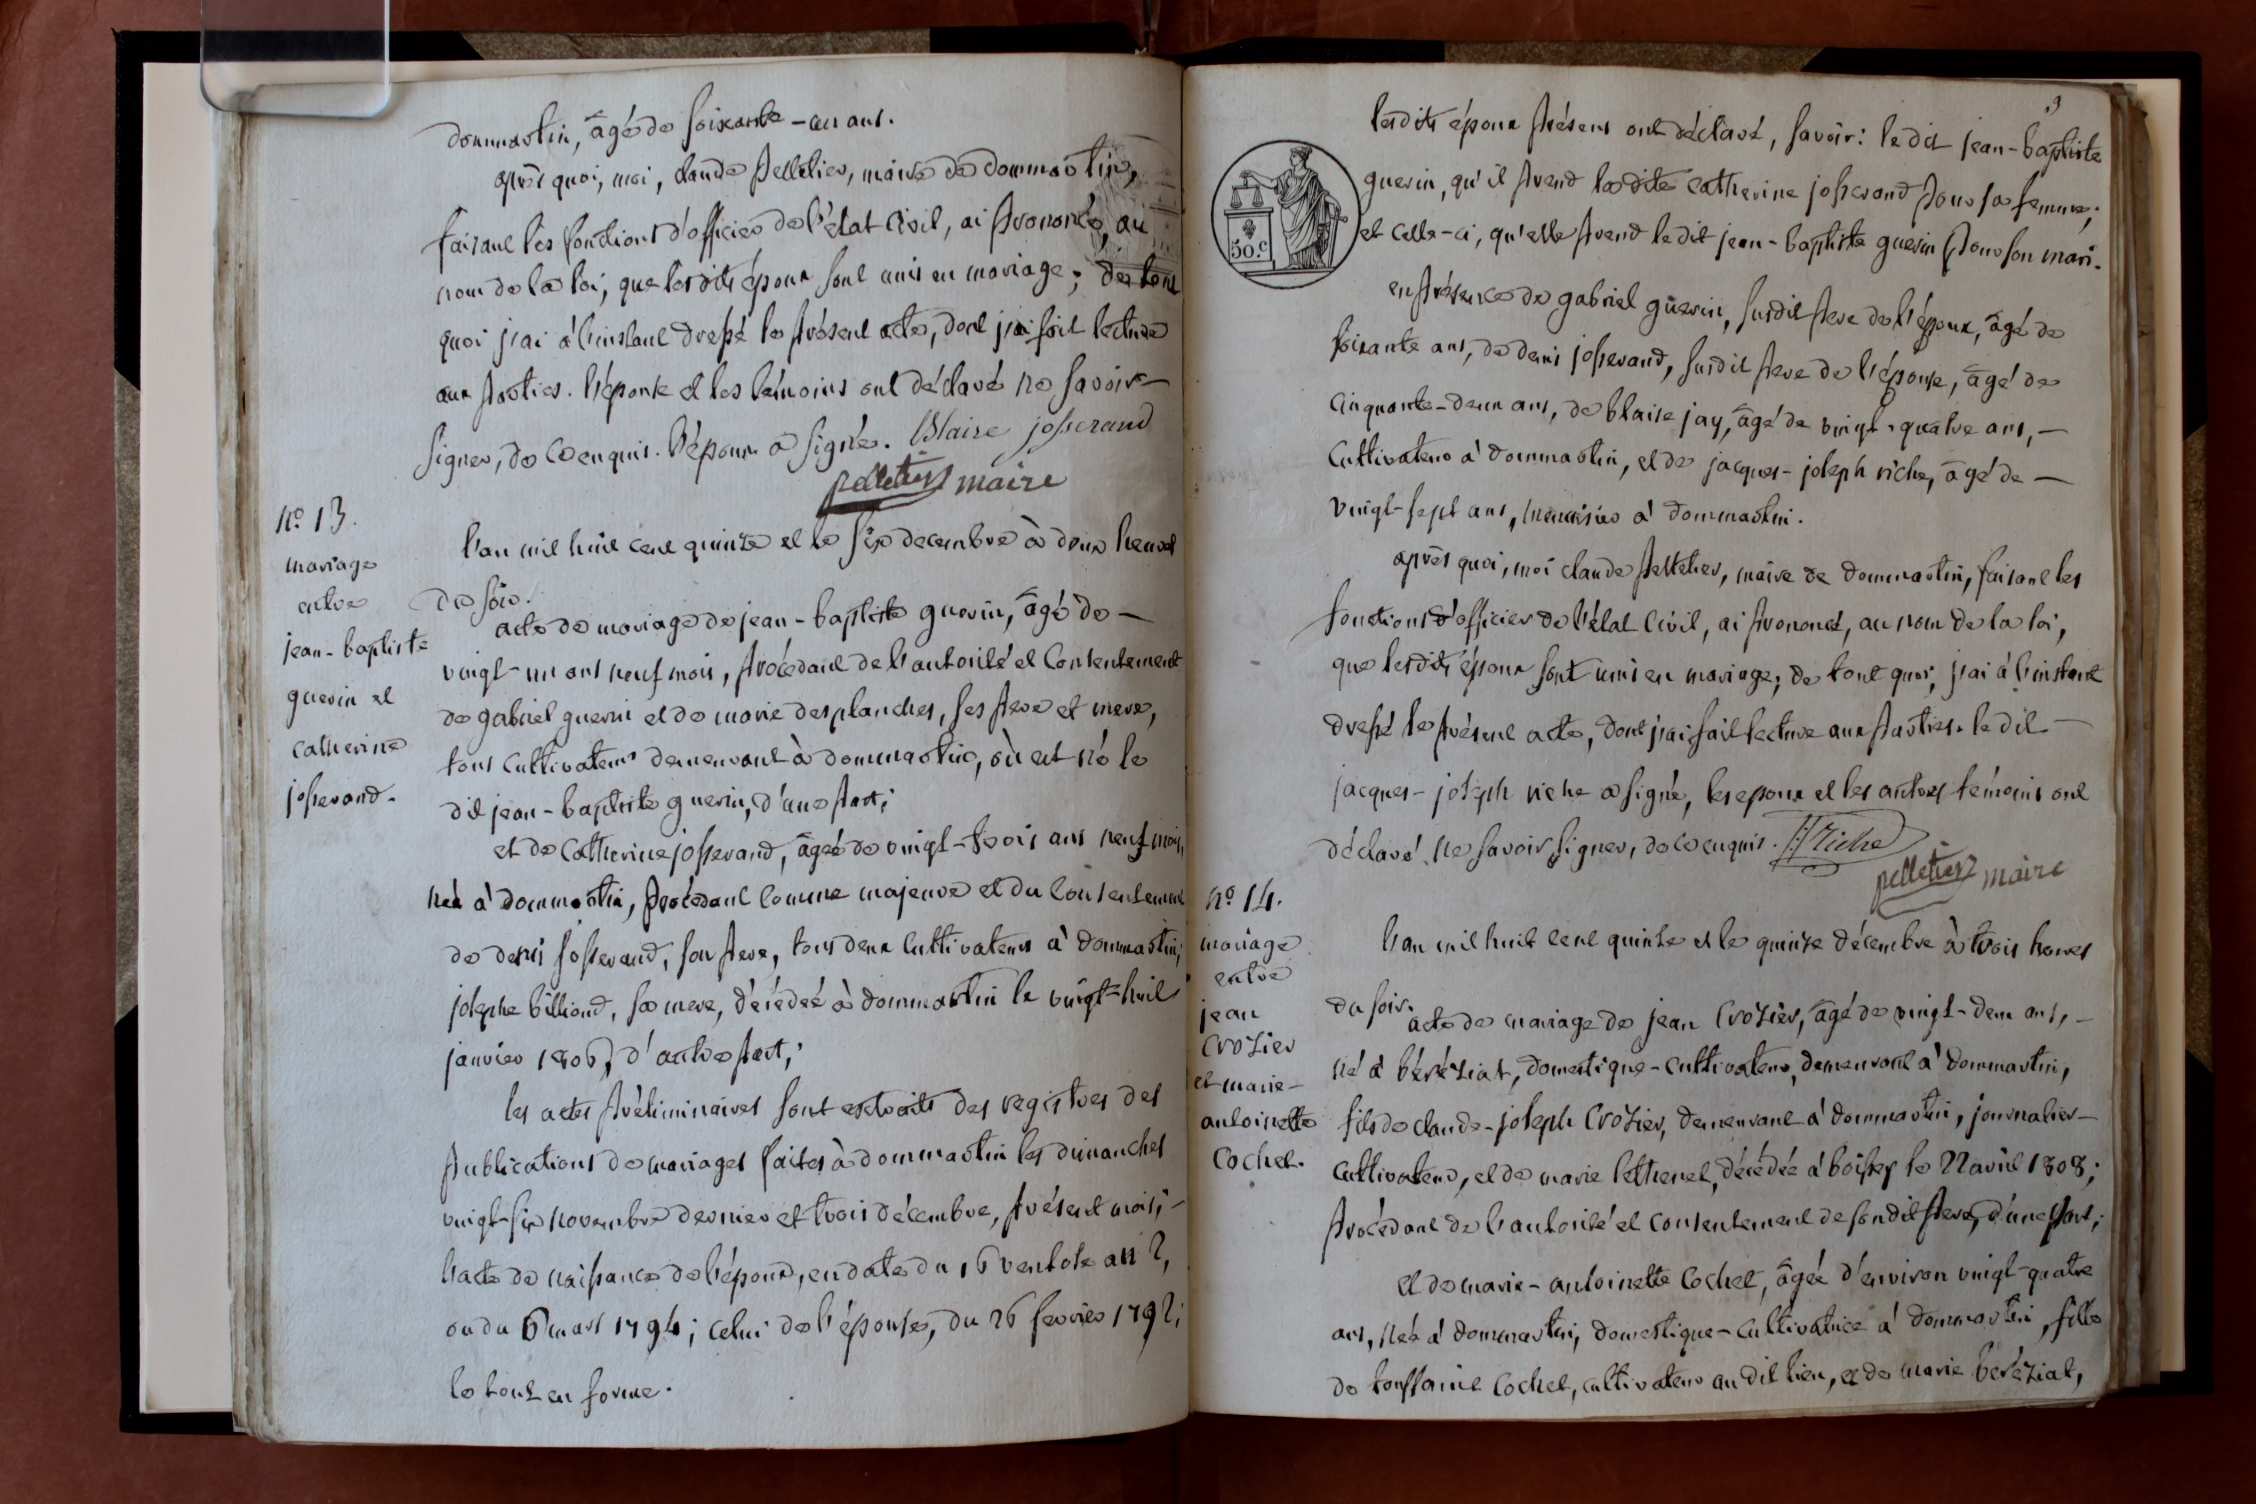 dommartin, âgé de soixante-un ans.
après quoi, moi, claude pelletier, maire de dommartin,
faisant les fonctions d'officier de l'état civil, ai prononcé, au
nom de la loi, que lesdits époux sont unis en mariage; de tout
quoi j'ai à l'instant dressé le présent acte, dont j'ai fait lecture
aux parties. l'épouse et les témoins ont déclaré ne savoir
signer, de ce enquis. l'époux a signé. Blaise josserand
pelletier maire
n.º 13.
mariage
entre
jean-baptiste
guerin et
catherine
josserand.
l'an mil huit cent quinze et le six decembre à deux heures
du soir.
acte de mariage de jean-baptiste guerin, âgé de
vingt-un ans neuf mois, procédant de l'autorité et consentement
de gabriel guerin et de marie desplanches, ses pere et mere,
tous cultivateurs demeurant à dommartin, où est né le
dit jean-baptiste guerin, d'une part;
et de catherine josserand, âgée de vingt-trois ans neuf mois,
née à dommartin, procédant comme majeure et du consentement
de denis josserand, son pere, tous deux cultivateurs à dommartin;
josephe billiond, sa mere, décédée à dommartin le vingt-huit
janvier 1806, d'autre part;
les actes préliminaires sont extraits des registres des
publications de mariages faites à dommartin les dimanches
vingt-six novembre dernier et trois décembre, présent mois;
l'acte de naissance de l'époux, en date du 16 ventose an 2,
ou du 6 mars 1794; celui de l'épouse, du 26 fevrier 1792;
le tout en forme.
9
50.c
lesdits époux présens ont déclaré, savoir: le dit jean-baptiste
guerin, qu'il prend la dite catherine josserand pour sa femme;
et celle-ci, qu'elle prend le dit jean-baptiste guerin pour son mari.
en présence de gabriel guerin, susdit pere de l'époux, âgé de
soixante ans, de denis josserand, susdit pere de l'épouse, âgé de
cinquante-deux ans, de blaise jay, âgé de vingt-quatre ans,
cultivateur à dommartin, et de jacques-joseph riche, âgé de
vingt-sept ans, menuisier à dommartin.
après quoi, moi claude pelletier, maire de dommartin, faisant les
fonctions d'officier de l'état civil, ai prononcé, au nom de la loi,
que lesdits époux sont unis en mariage; de tout quoi, j'ai à l'instant
dressé le présent acte, dont j'ai fait lecture aux parties. le dit
jacques-joseph riche a signé, les époux et les autres témoins ont
déclaré ne savoir signer, de ce enquis. JJ Riche
pelletier maire
n.º 14.
mariage
entre
jean
crozier
et marie-
antoinette
cochet.
l'an mil huit cent quinze et le quinze décembre à trois heures
du soir.
acte de mariage de jean crozier, âgé de vingt-deux ans,
né à béréziat, domestique-cultivateur, demeurant à dommartin,
fils de claude-joseph crozier, demeurant à dommartin, journalier-
cultivateur, et de marie bethenet, décédée à boissey le 22 avril 1808;
procédant de l'autorité et consentement de son dit pere, d'une part;
et de marie-antoinette cochet, âgée d'environ vingt-quatre
ans, née à dommartin, domestique-cultivatrice à dommartin, fille
de toussaint cochet, cultivateur au dit lieu, et de marie beréziat,